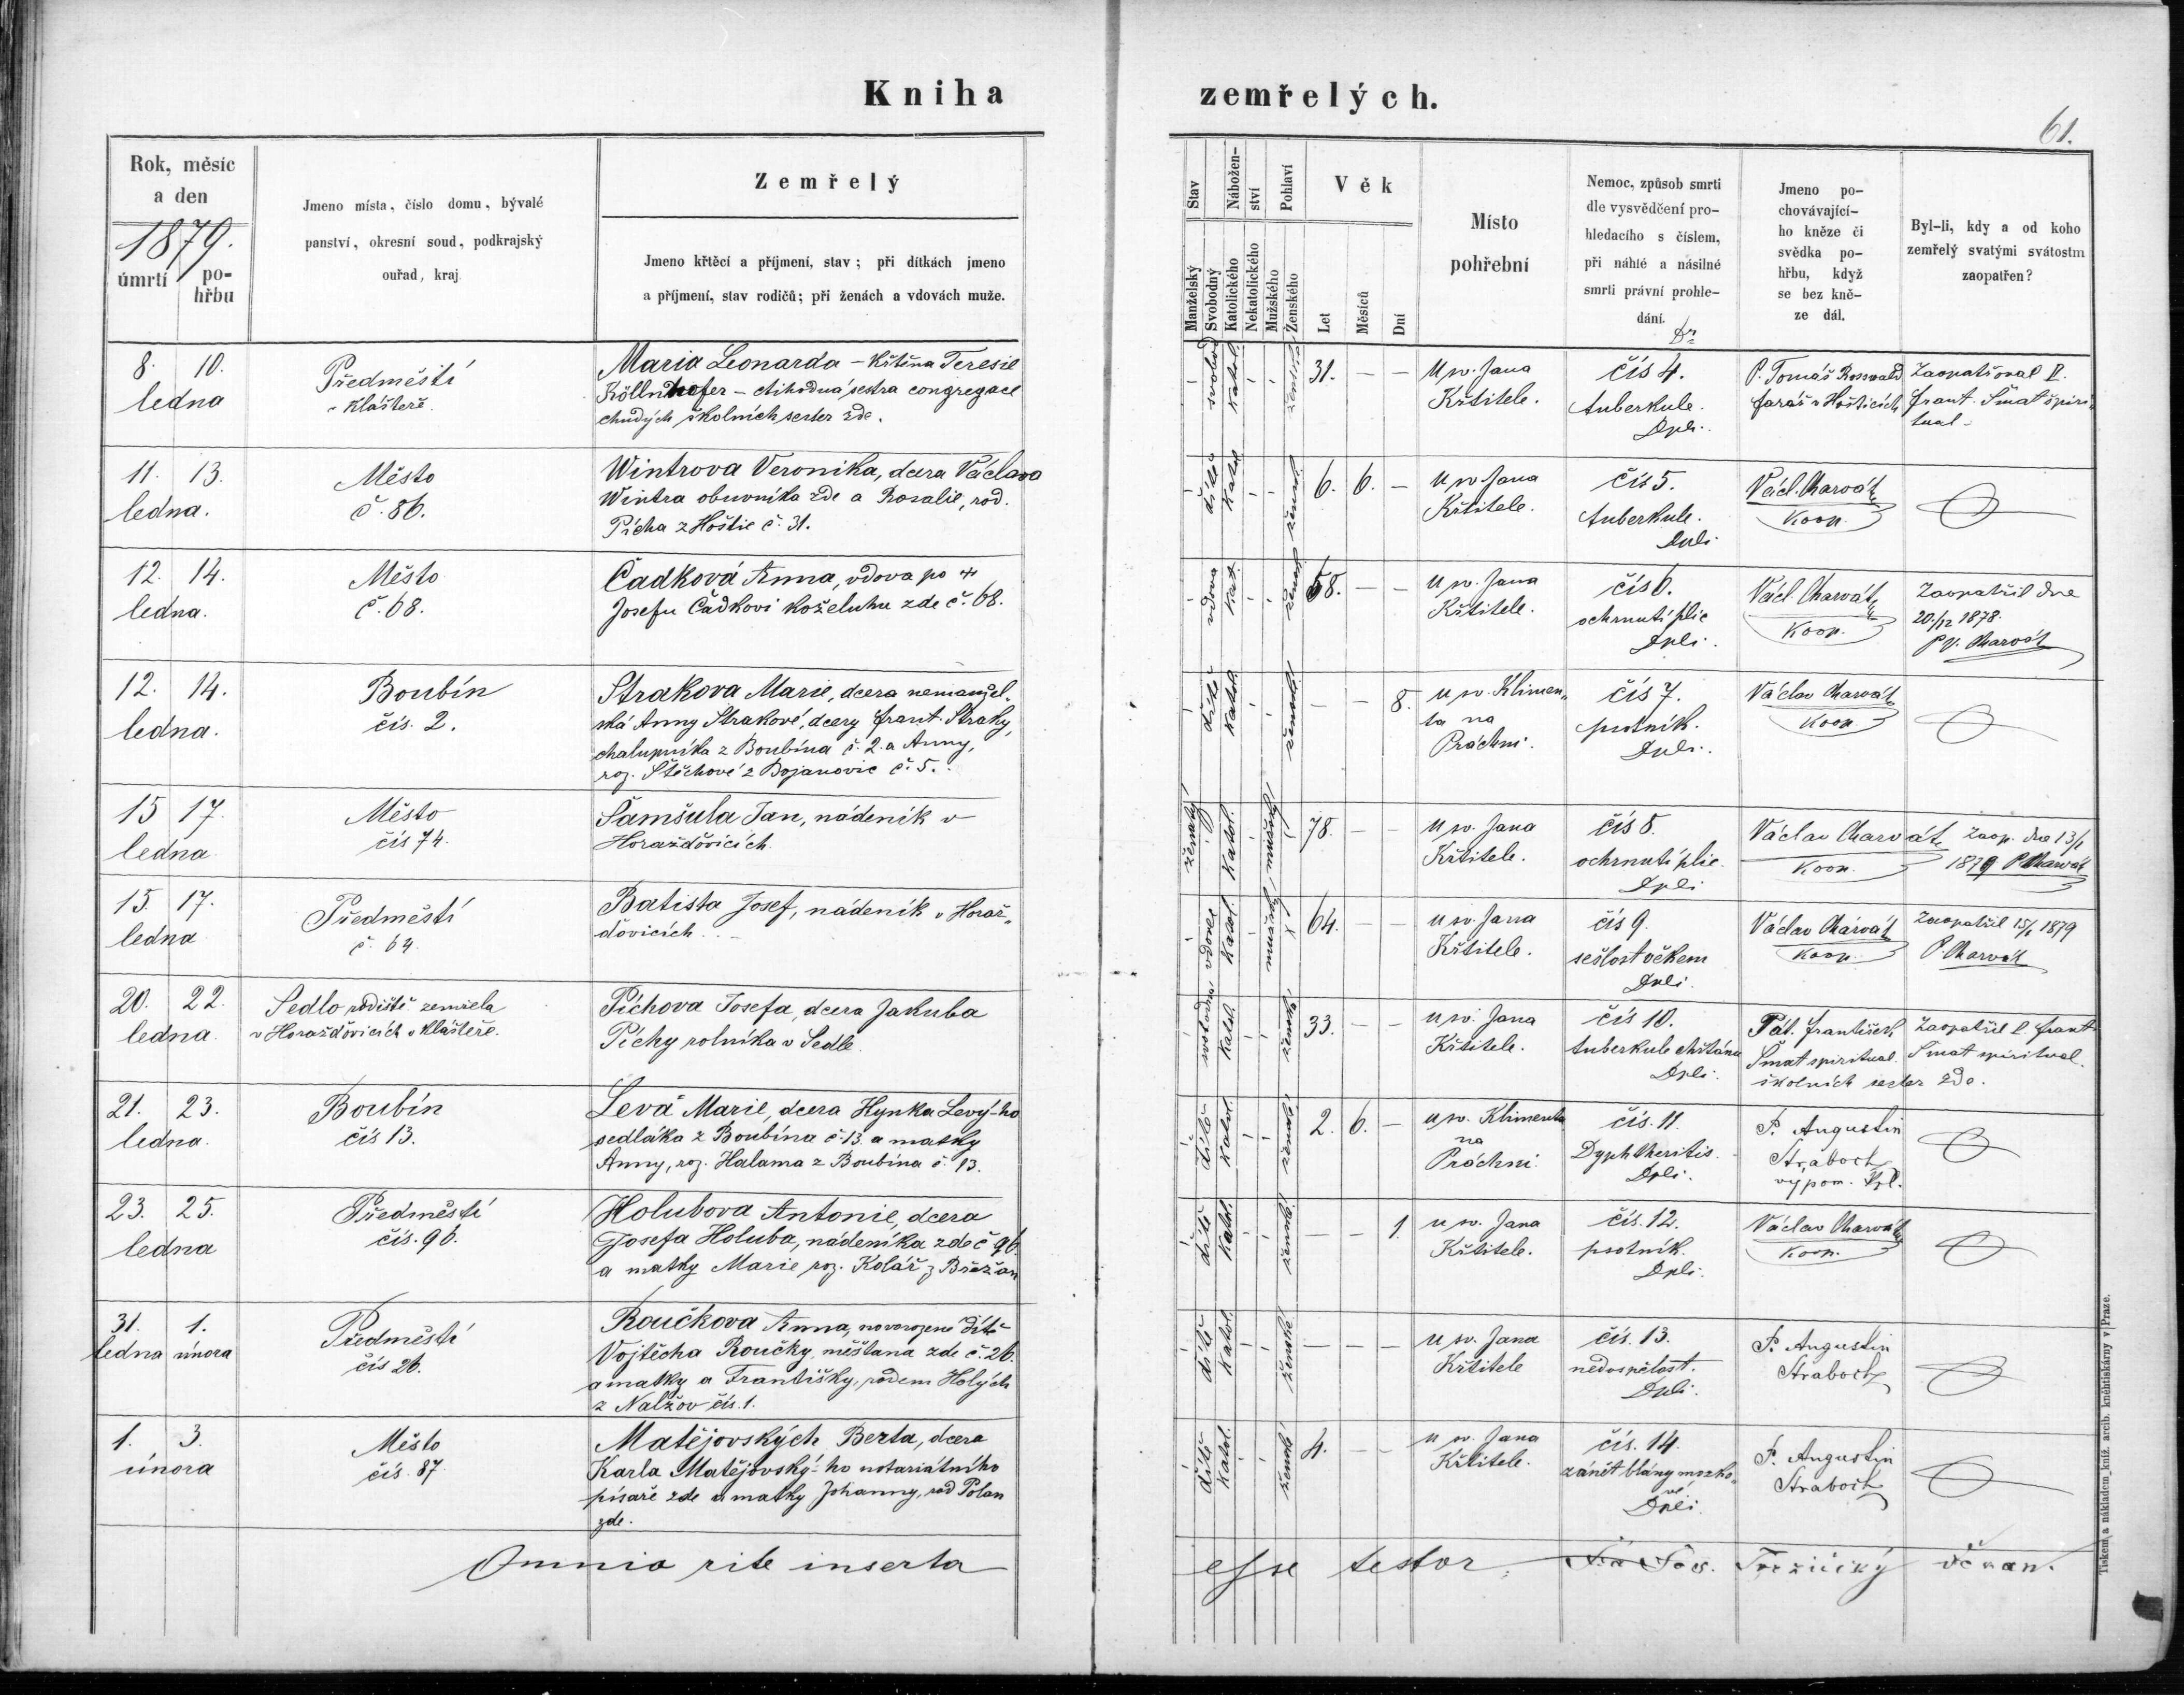 Kniha zemřelých.
61.
Rok, měsíc
a den
1879.
úmrtí
po-
hřbu
Jmeno místa, číslo domu, bývalé
panství, okresní soud, podkrajský
ouřad, kraj
Zemřelý
Jmeno křtěcí a příjmení, stav; při dítkách jmeno
a příjmení, stav rodičů; při ženách a vdovách muže.
Stav
Nábožen-
ství
Pohlaví
Manželský
Svobodný
Katolického
Nekatolického
Mužského
Ženského
Věk
Let
Měsíců
Dní
Místo
pohřební
Nemoc, způsob smrti
dle vysvědčení pro-
hledacího s číslem,
při náhlé a násilné
smrti právní prohle-
dání.
Jmeno po-
chovávající-
ho kněze či
svědka po-
hřbu, když
se bez kně-
ze dál.
Byl-li, kdy a od koho
zemřelý svatými svátostmi
zaopatřen?
8. 10.
ledna
Předměstí
v Klášteře.
Maria Leonarda – křtěna Teresie
Köllnhofer – ctihodná sestra congregace
chudých školních sester zde.
svobod. katol. ženská
31. — —
u sv. Jana
Křtitele.
čís 4.
tuberkule.
Dpli.
P. Tomáš Rosswald
farář v Hošticích
Zaopatřoval P.
Frant. Šmat špiri-
tual
11. 13.
ledna.
Město
č. 86.
Wintrova Veronika, dcera Václava
Wintra obuvníka zde a Rosalie, rod.
Pícha z Hoštic č. 31.
dítě katol. žensk.
6. 6. —
u sv. Jana
Křtitele.
čís 5.
tuberkule.
Dpli
Václ. Charvát
Koop.
12. 14.
ledna.
Město
č. 68.
Čadková Anna, vdova po +
Josefu Čadkovi koželuhu zde č. 68.
vdova kat. žensk.
68. — —
u sv. Jana
Křtitele.
čís 6.
ochrnutí plic
Dpli.
Václ. Charvát
Koop.
Zaopatřil dne
20./12 1878.
P. V. Charvát
12. 14.
ledna.
Boubín
čís. 2.
Strakova Marie, dcera nemanžel-
ská Anny Strakové, dcery Frant. Straky,
chalupníka z Boubína č. 2. a Anny,
roz. Štěchové z Bojanovic č. 5.
dítě katol. ženské
— — 8.
u sv. Klimen-
ta na
Práchni.
čís 7.
psotník.
Dpli.
Václav Charvát
Koop.
15 17.
ledna
Město
čís 74.
Šamšula Jan, nádeník v
Horažďovicích.
ženatý katol. mužský
78. — —
u sv. Jana
Křtitele.
čís 8.
ochrnutí plic.
Dpli
Václav Charvát
Koop.
zaop. dne 13/1
1879 P. Charvát
15. 17.
ledna
Předměstí
č. 64
Batista Josef, nádeník v Horaž-
ďovicích.
vdovec katol. mužský
64. — —
u sv. Jana
Křtitele.
čís 9.
sešlost věkem
Dpli.
Václav Charvát
Koop.
Zaopatřil 15/1 1879
P. Charvát
20. 22.
ledna.
Sedlo rodiště zemřela
v Horažďovicích v klášteře.
Píchova Josefa, dcera Jakuba
Píchy rolníka v Sedle.
svobodná katol. ženské
33. — —
u sv. Jana
Křtitele.
čís 10.
tuberkule chřtánu
Dpli.
Pát. František
Šmat spiritual.
školních sester zde.
Zaopatřil P. Frant.
Šmat spiritual.
21. 23.
ledna.
Boubín
čís 13.
Levá Marie, dcera Hynka Levý-ho
sedláka z Boubína č. 13. a matky
Anny, roz. Halama z Boubína č. 13.
dítě katol. ženské
2. 6. —
u sv. Klimenta
na
Práchni.
čís. 11.
Dyphtheritis.
Dpli.
P. Augustin
Straboch
vypom. Kpl.
23. 25.
ledna
Předměstí
čís. 96.
Holubova Antonie, dcera
Josefa Holuba, nádeníka zde č 96.
a matky Marie roz. Kolář z Břežan
dítě katol. ženské
— — 1.
u sv. Jana
Křtitele.
čís. 12.
psotník.
Dpli.
Václav Charvát
Koop.
31. 1.
ledna února
Předměstí
čís 26.
Roučkova Anna, novorozené dítě
Vojtěcha Roučky, měšťana zde č. 26.
a matky a Františky, rodem Holých
z Nalžov čís. 1.
dítě katol. ženské
— — —
u sv. Jana
Křtitele
čís. 13.
nedospělost.
Dpli.
P. Augustin
Straboch
1. 3.
února
Město
čís. 87.
Matějovských Berta, dcera
Karla Matějovský-ho notariátního
písaře zde a matky Johanny, rod Polan
zde.
dítě katol. ženské
4. — —
u sv. Jana
Křtitele.
čís. 14.
zánět blány mozko-
vé
Dpli.
P. Augustin
Straboch
Omnia rite inserta esse testor, děkan.
Tiskem a nákladem kníž. arcib. kněhtiskárny v Praze.